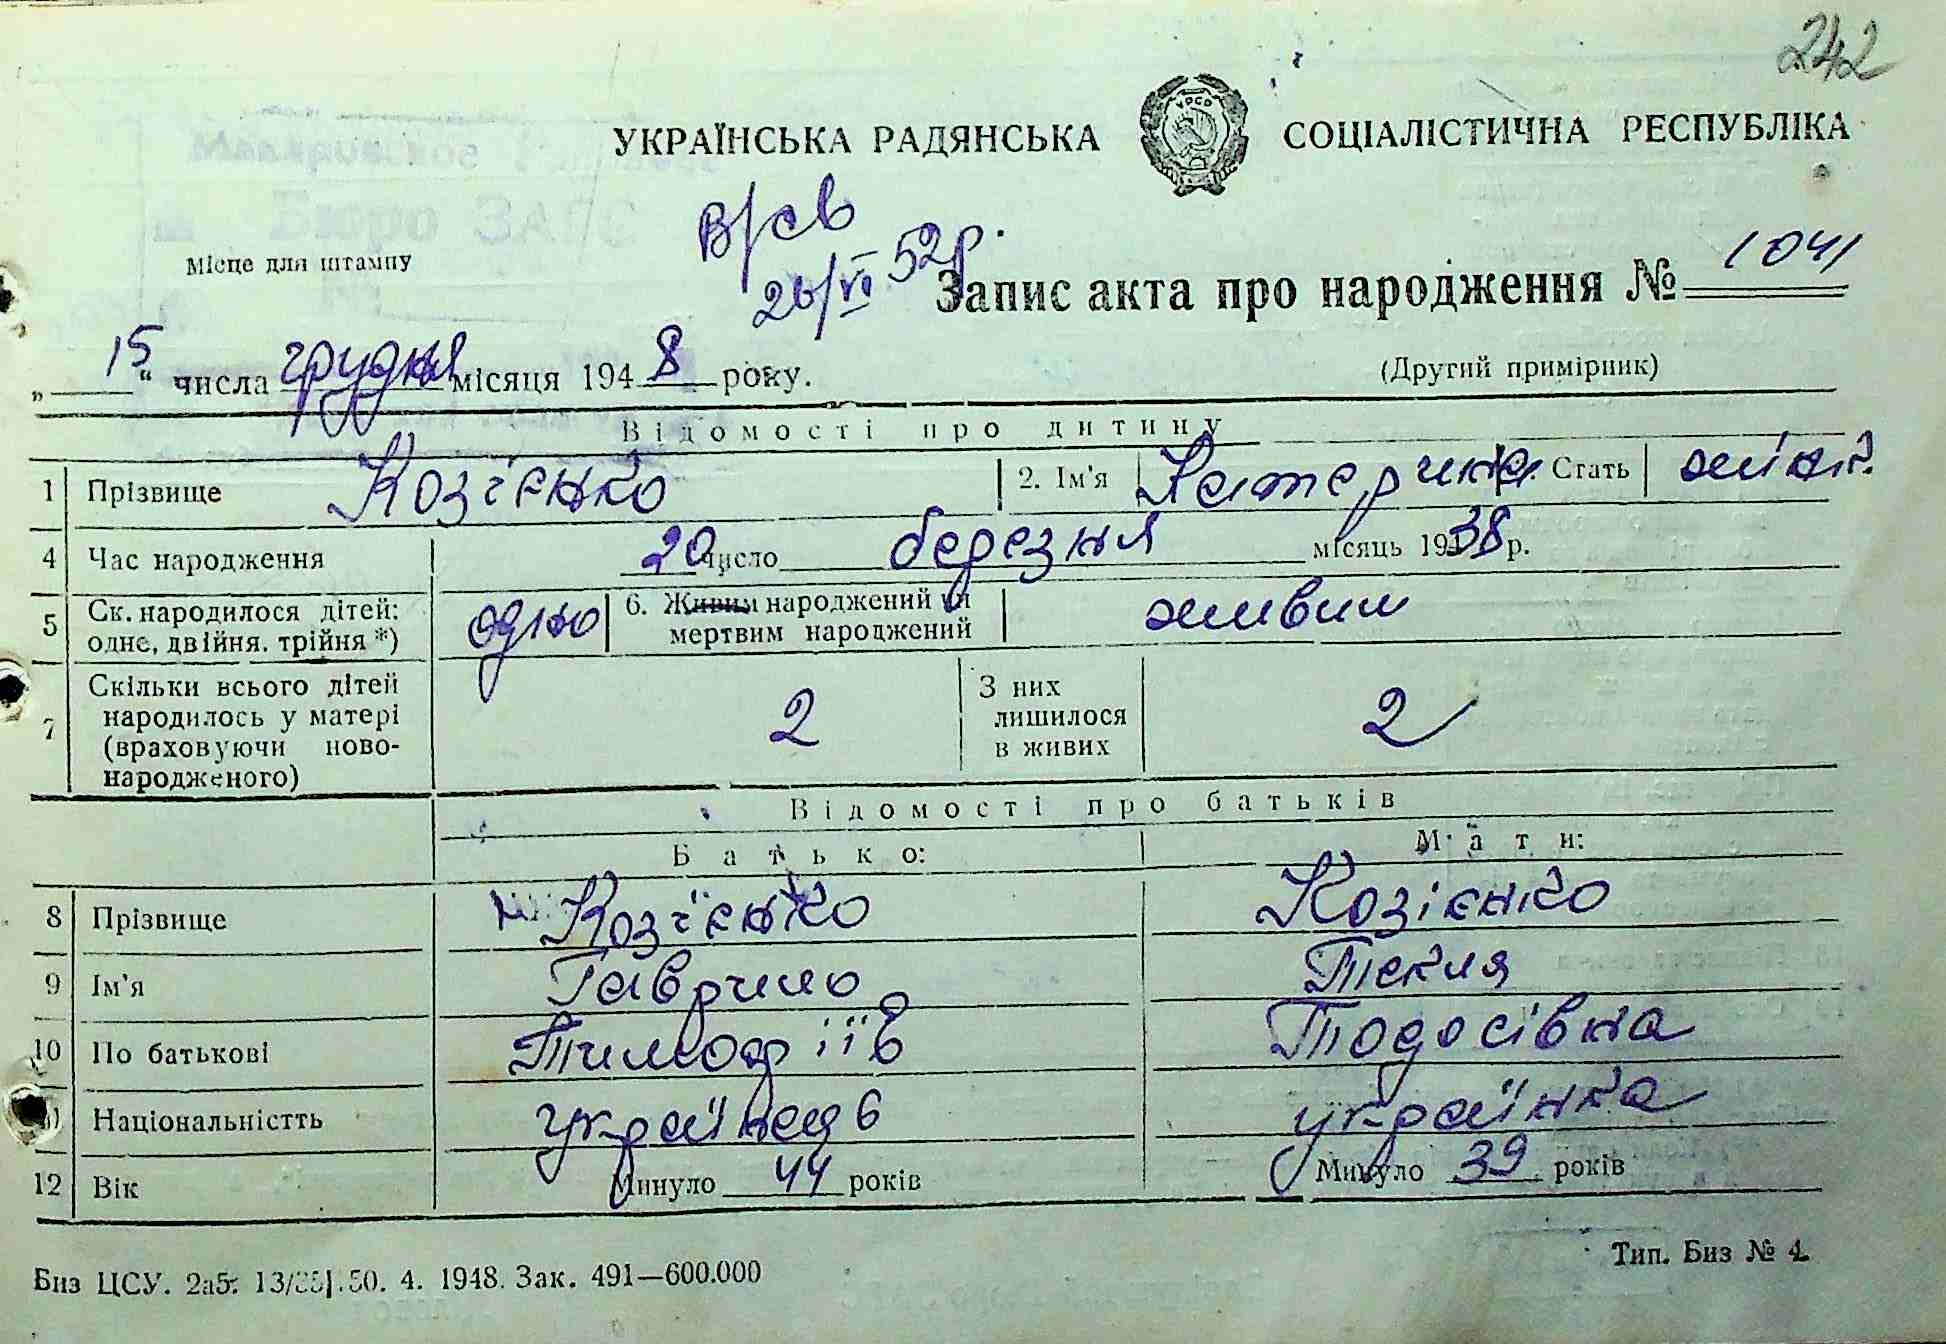 242
УКРАЇНСЬКА РАДЯНСЬКА СОЦІАЛІСТИЧНА РЕСПУБЛІКА
УРСР
В/св
26/VI 52р.
Місце для штампу
Запис акта про народження № 1041
„ 15 “ числа грудня місяця 1948 року.
(Другий примірник)
Відомості про дитину
1 Прізвище Козієнко 2. Ім'я Катерина Стать жіноч.
4 Час народження 20 число березня місяць 1938 р.
5 Ск. народилося дітей: одне, двійня, трійня *) одно 6. Живим народжений чи мертвим народжений живим
7 Скільки всього дітей народилось у матері (враховуючи новонародженого) 2 З них лишилося в живих 2
Відомості про батьків
Батько: Мати:
8 Прізвище Козієнко Козієнко
9 Ім'я Гаврило Текля
10 По батькові Тимофіїв Тодосівна
11 Національністть українець українка
12 Вік Минуло 44 років Минуло 39 років
Биз ЦСУ. 50. 4. 1948. Зак. 491—600.000
Тип. Биз № 4